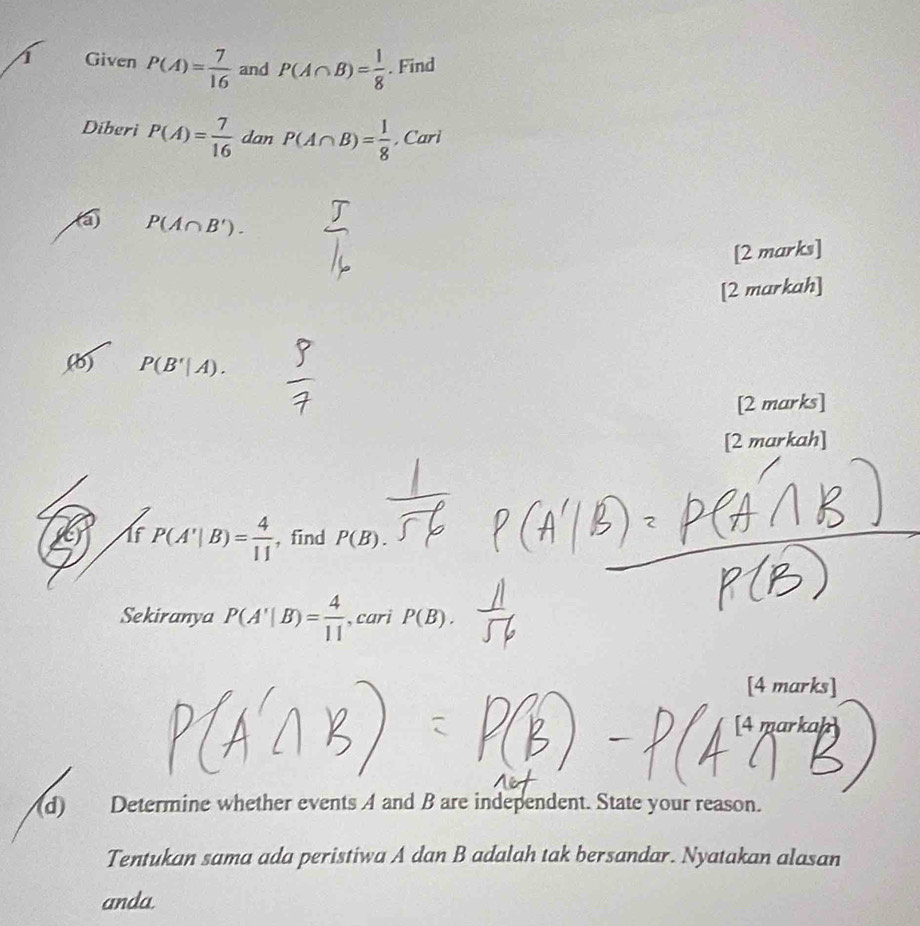 1 Given P(A) = 7/16 and P(A∩B) = 1/8. Find
Diberi P(A) = 7/16 dan P(A∩B) = 1/8, Cari
(a) P(A∩B'). 5/16
[2 marks]
[2 markah]
(b) P(B'|A).
[2 marks]
[2 markah]
(c) If P(A'|B) = 4/11, find P(B). 1/56 P(A'|B) = P(A'∩B)/P(B)
Sekiranya P(A'|B) = 4/11, cari P(B). 11/56
[4 marks]
[4 markah]
P(A'∩B) = P(B) - P(A∩B)
not
(d) Determine whether events A and B are independent. State your reason.
Tentukan sama ada peristiwa A dan B adalah tak bersandar. Nyatakan alasan
anda.